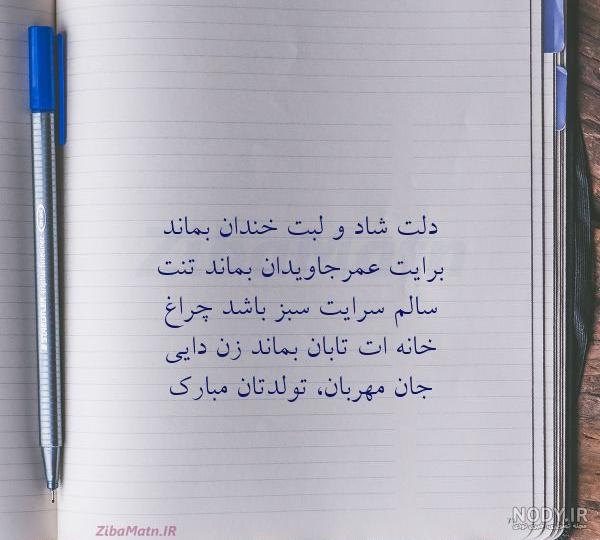 دلت شاد و لبت خندان بماند
برایت عمرجاویدان بماند تنت
سالم سرایت سبز باشد چراغ
خانه ات تابان بماند زن دایی
جان مهربان، تولدتان مبارک
ZibaMatn.IR
NODY.IR